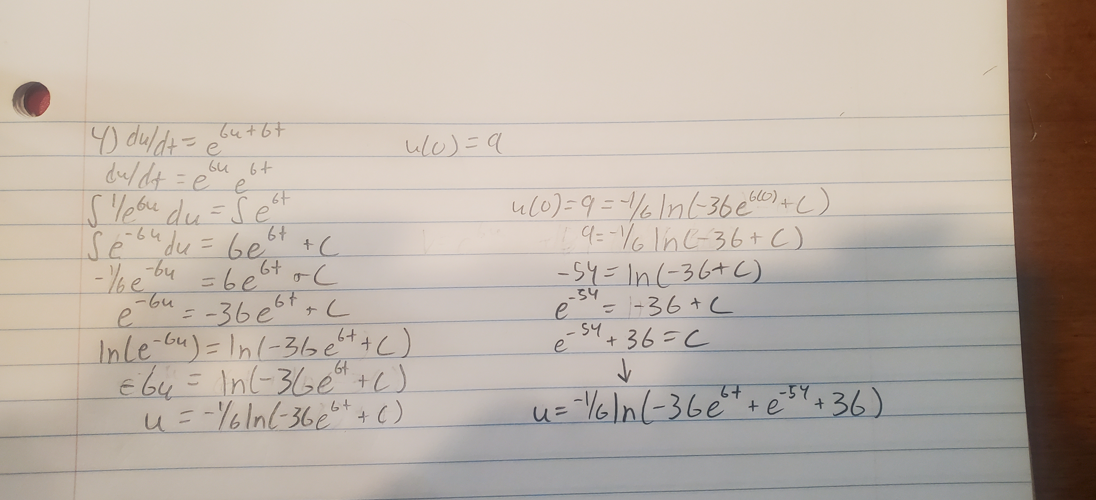 4) du/dt = e^{6u+6t} u(0) = 9
du/dt = e^{6u} e^{6t}
∫ 1/e^{6u} du = ∫ e^{6t}
∫ e^{-6u} du = 6e^{6t} + C
-1/6 e^{-6u} = 6e^{6t} + C
e^{-6u} = -36e^{6t} + C
ln(e^{-6u}) = ln(-36e^{6t} + C)
-6u = ln(-36e^{6t} + C)
u = -1/6 ln(-36e^{6t} + C)
u(0) = 9 = -1/6 ln(-36e^{6(0)} + C)
9 = -1/6 ln(-36 + C)
-54 = ln(-36 + C)
e^{-54} = -36 + C
e^{-54} + 36 = C
↓
u = -1/6 ln(-36e^{6t} + e^{-54} + 36)